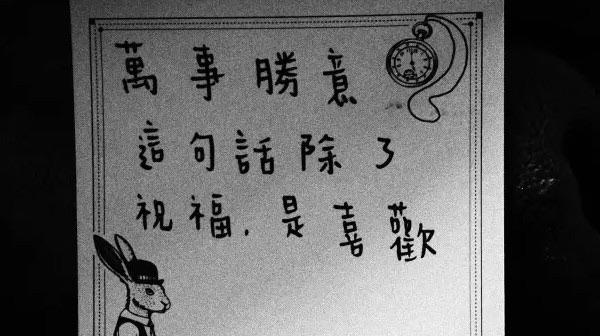 萬事勝意
這句話除了
祝福,是喜歡